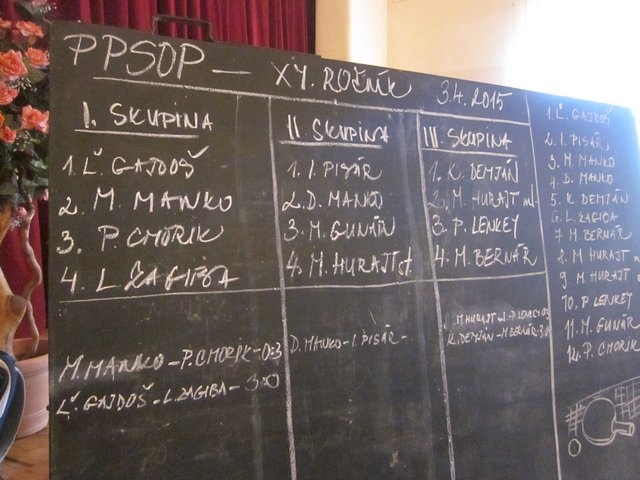 PPSOP — XV. ROČNÍK 3.4.2015
I. SKUPINA
1. Ľ. GAJDOŠ
2. M. MANKO
3. P. CHORIK
4. L. ZAGIBA
M. MANKO - P. CHORIK - 0:3
Ľ. GAJDOŠ - L. ZAGIBA - 3:0
II. SKUPINA
1. I. PISÁR
2. D. MANKO
3. M. GUNÁR
4. M. HURAJT st.
D. MANKO - I. PISÁR -
III. SKUPINA
1. K. DEMJÁN
2. M. HURAJT ml.
3. P. LENKEY
4. M. BERNÁR
M. HURAJT ml - P. LENKEY - 0:3
K. DEMJÁN - M. BERNÁR - 3:0
1. Ľ. GAJDOŠ
2. I. PISÁR
3. M. MANKO
4. D. MANKO
5. K. DEMJÁN
6. L. ZAGIBA
7. M. BERNÁR
8. M. HURAJT
9. M. HURAJT
10. P. LENKEY
11. M. GUNÁR
12. P. CHORIK